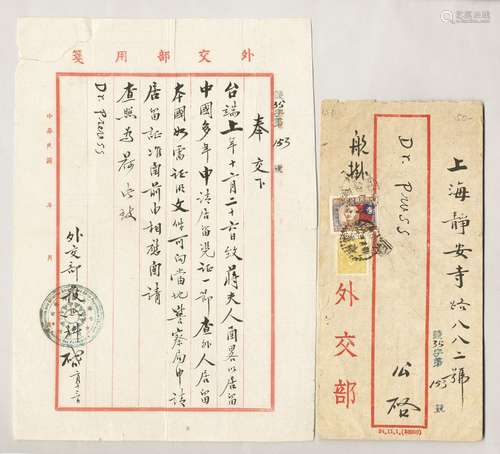 外交部用箋
護35字第153號
奉交下
台端上年十一月二十六日致蔣夫人函畧以居留
中國多年申請居留憑證一節查外人居留
本國如需証明文件可向當地警察局申請
居留証准函前由相應函請
查照為荷此致
Dr. Press
外交部護照科啟
中華民國 年 月
上海靜安寺路八八二號
Dr. Press
公啓
護35字第153號
航掛
外交部